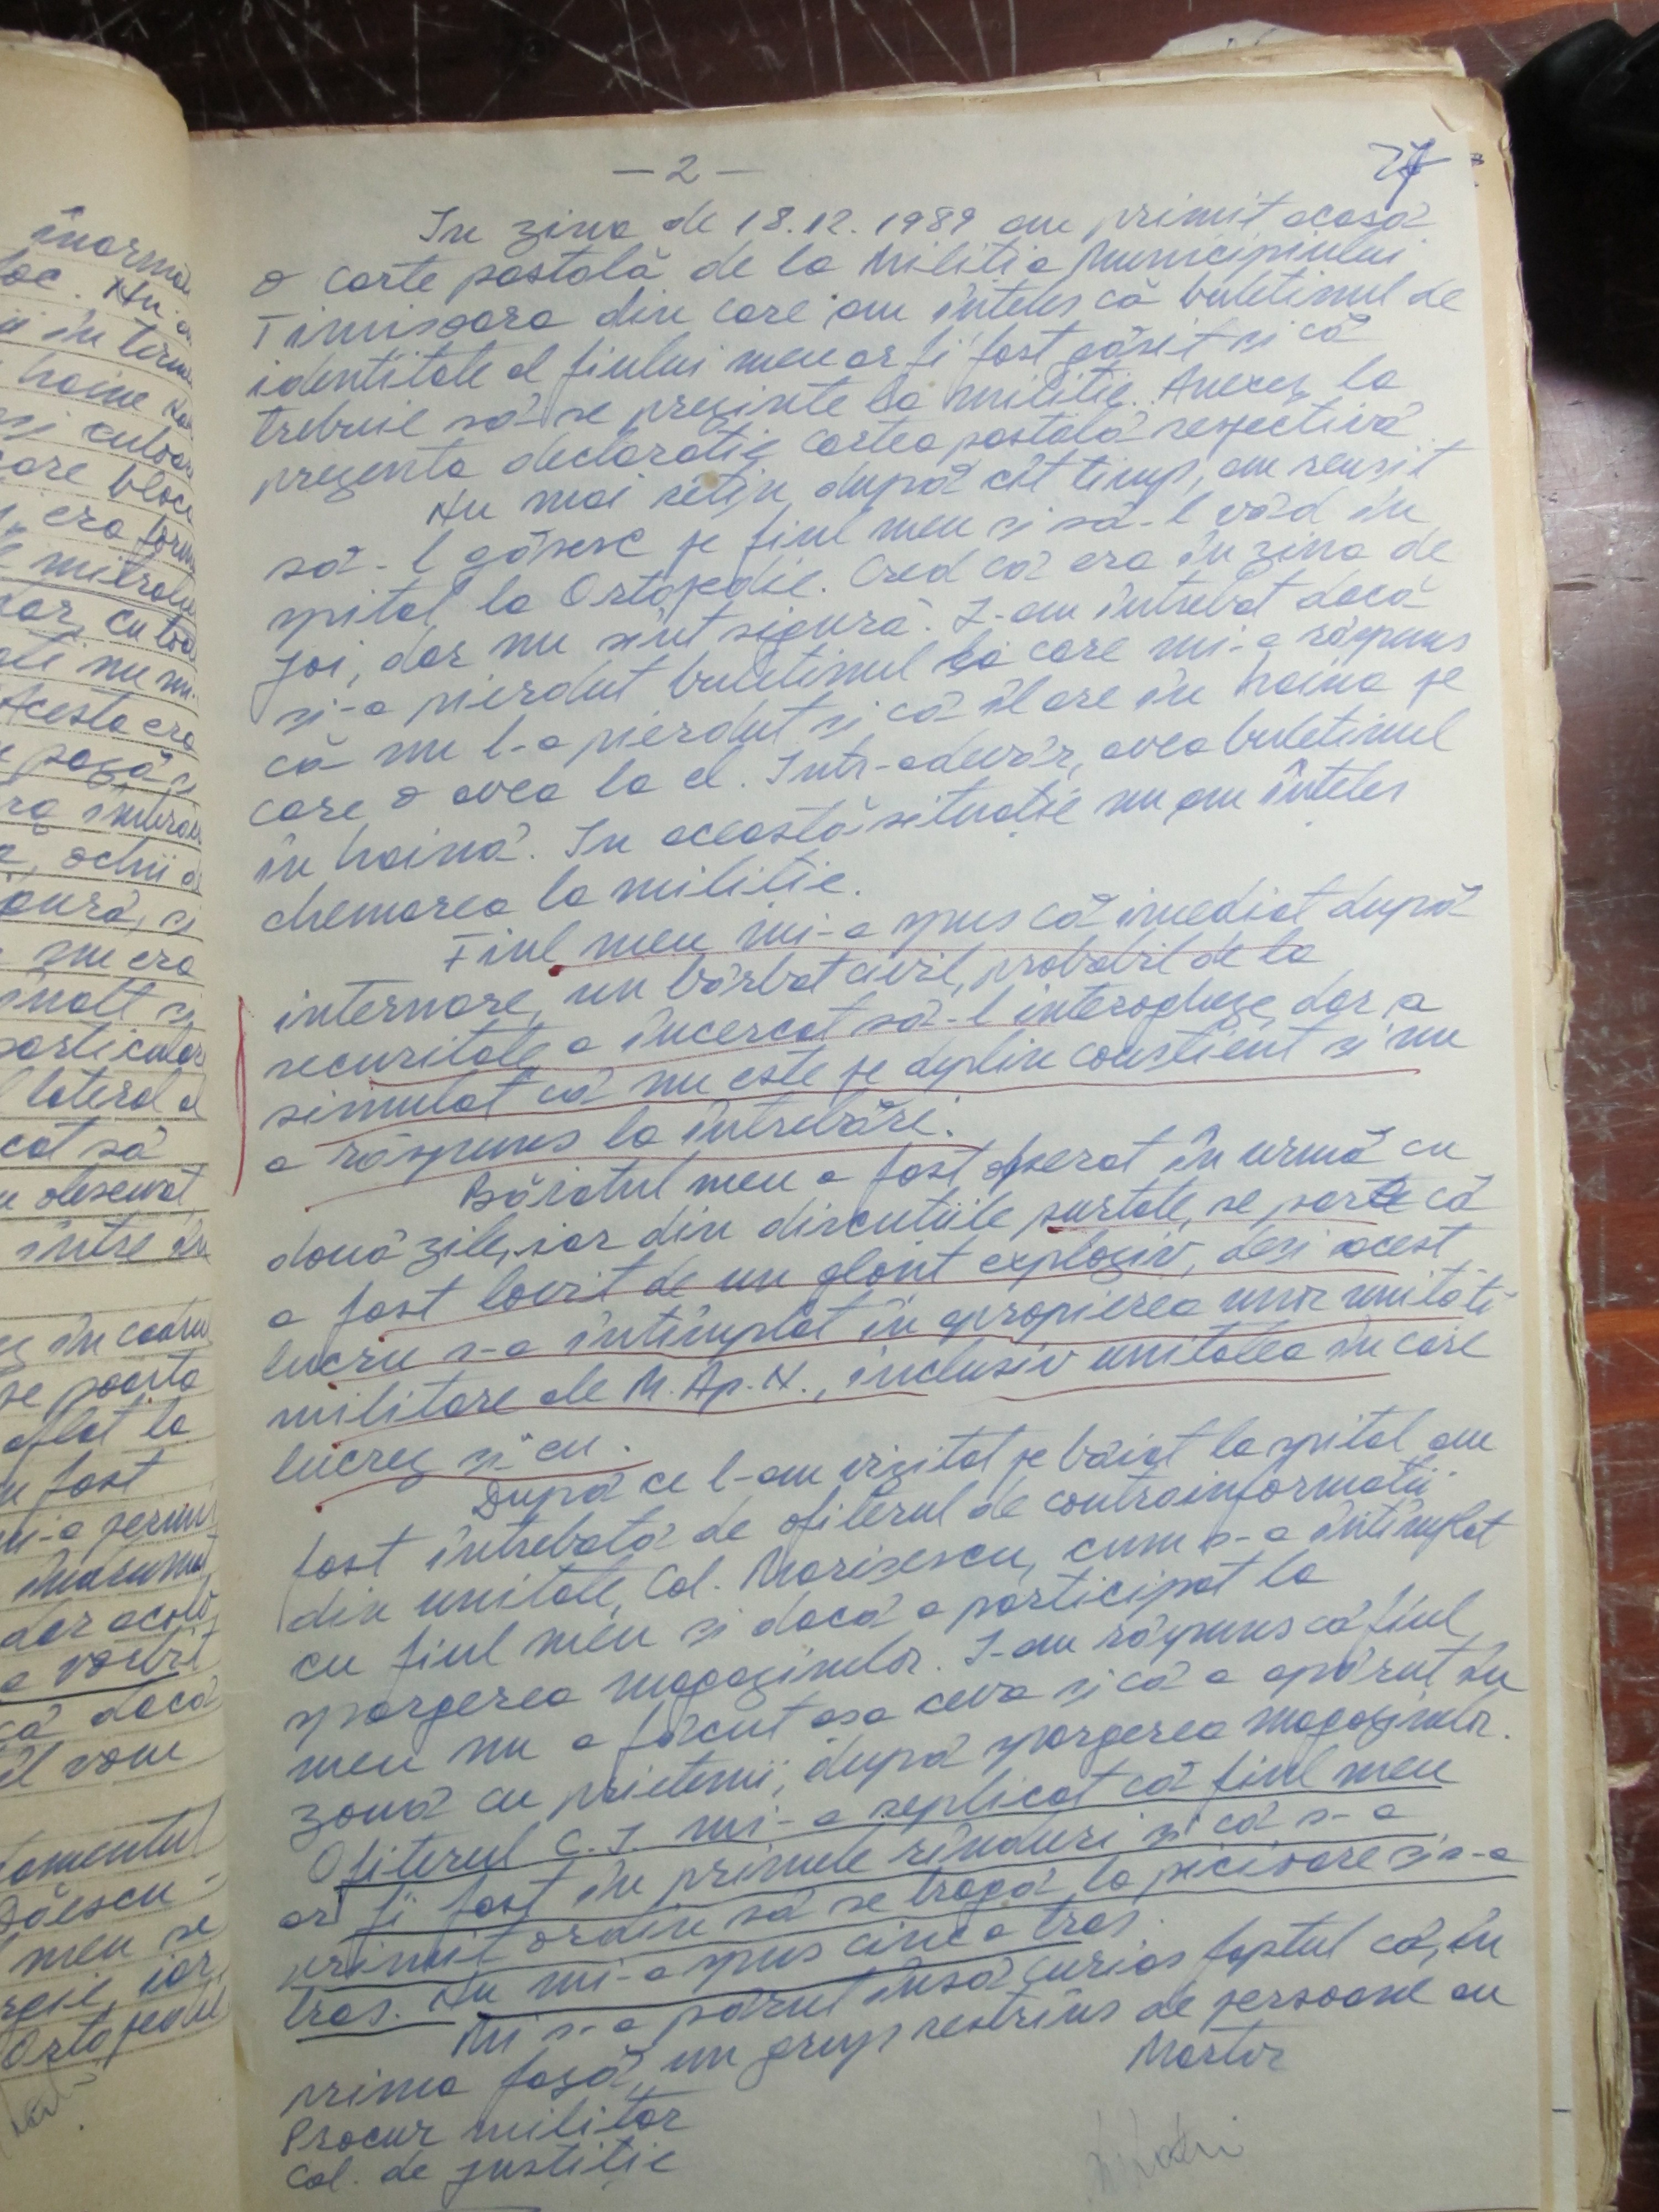 — 2 —
27
In ziua de 18.12.1989 am primit acasă
o carte postală de la Militia Municipiului
Timisoara din care am înteles că buletinul de
identitate al fiului meu ar fi fost găsit si că
trebuie să se prezinte la militie. Anexez la
prezenta declaratie cartea postală respectivă.
Nu mai retin după cît timp, am reusit
să-l găsesc pe fiul meu si să-l văd în
spital la Ortopedie. Cred că era în ziua de
joi, dar nu sînt sigură. L-am întrebat dacă
si-a pierdut buletinul la care mi-a răspuns
că nu l-a pierdut si că îl are în haina pe
care o avea la el. Intr-adevăr, avea buletinul
în haină. In această situatie nu am înteles
chemarea la militie.
Fiul meu mi-a spus că imediat după
internare, un bărbat civil, probabil de la
securitate a încercat să-l interogheze dar a
simulat că nu este pe deplin constient si nu
a răspuns la întrebări.
Băiatul meu a fost operat în urmă cu
două zile, iar din discutiile purtate, se pare că
a fost lovit de un glont exploziv, desi acest
lucru s-a întîmplat în apropierea unor unităti
militare ale M.Ap.N., inclusiv unitatea în care
lucrez si eu.
După ce l-am vizitat pe băiat la spital am
fost întrebată de ofiterul de contrainformatii
din unitate, Col. Marisescu, cum s-a întîmplat
cu fiul meu si dacă a participat la
spargerea magazinelor. I-am răspuns că fiul
meu nu a făcut asa ceva si că a apărut în
zonă cu prietenii, după spargerea magazinelor.
Ofiterul C.I. mi-a replicat că fiul meu
ar fi fost în primele rînduri si că s-a
primit ordin să se tragă la picioare si s-a
tras. Nu mi-a spus cine a tras.
Mi s-a părut însă curios faptul că, în
prima fază, un grup restrîns de persoane au
Martor
Procur militar
Col. de justitie
înarma
loc. Nu
haine
si culoar
care bloc
era form
dar, cu toa
Acesta era
ochii a
nu era
înalt si
particular
l lateral a
cat să
observat
între
în cadru
se poartă
aflat la
fost
mi-a permi
dar acolo
a vorbit
că dacă
il vom
meu se
iar
Ortopedie